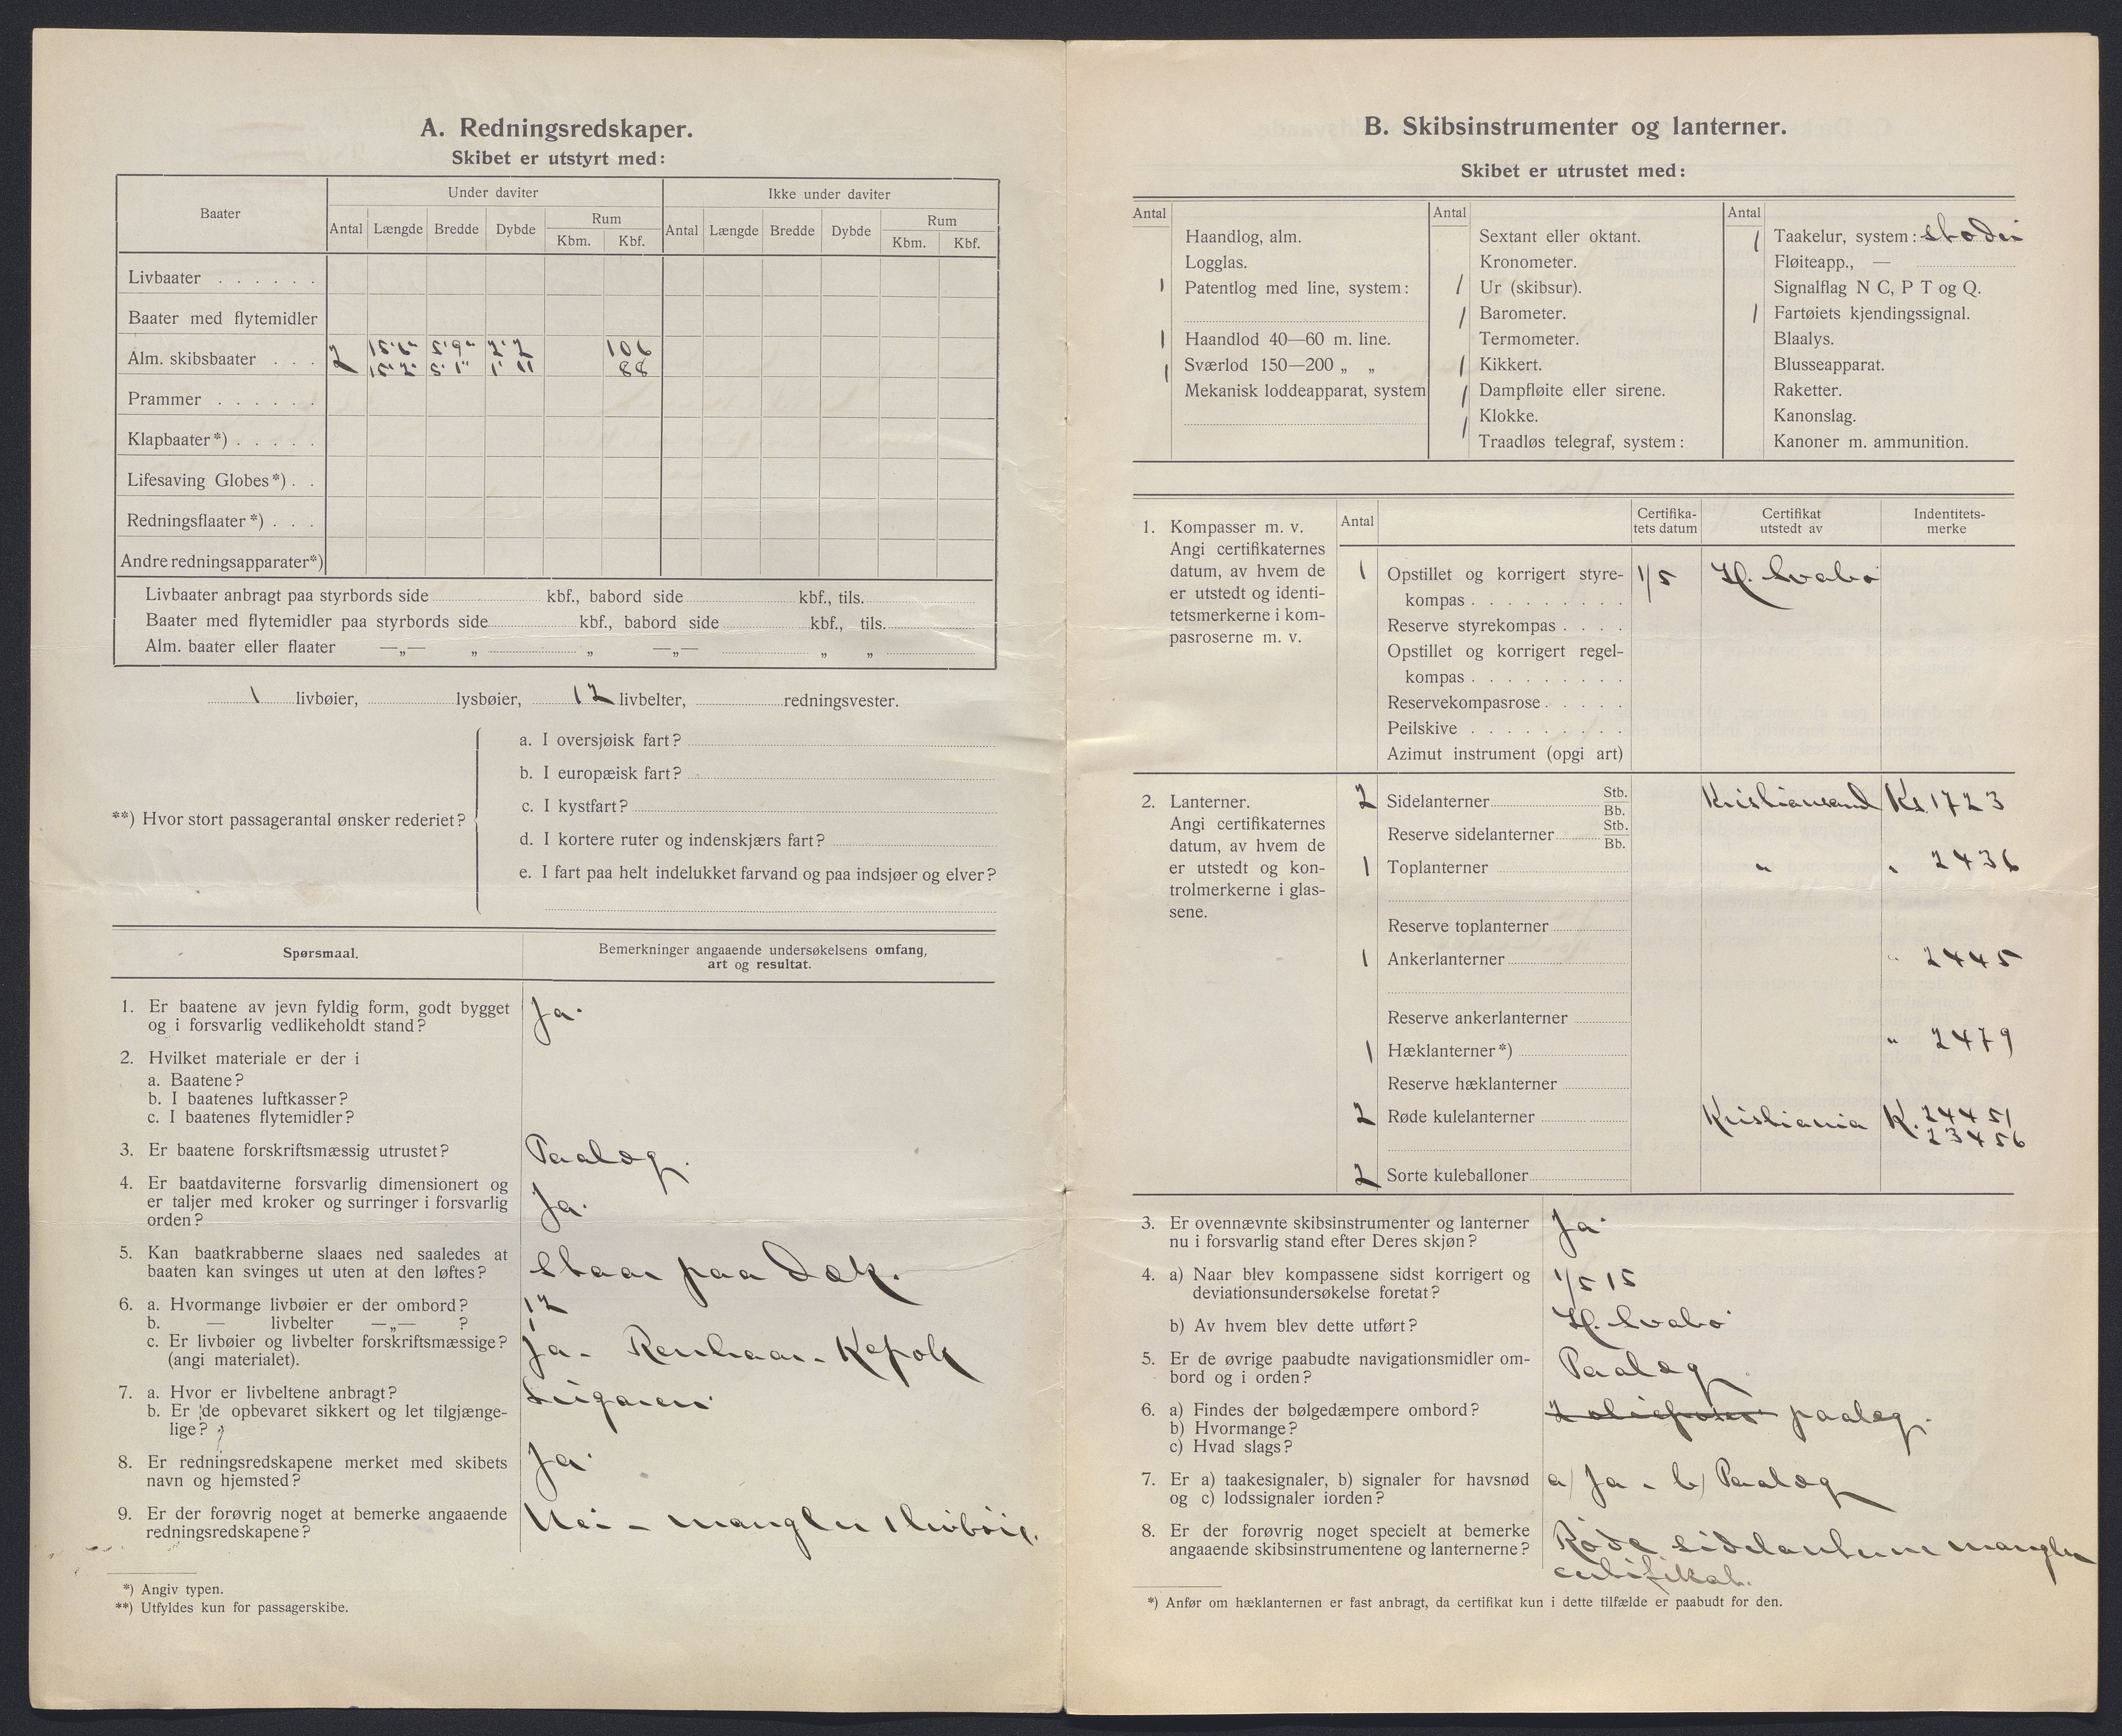 A. Redningsredskaper.
Skibet er utstyrt med:
Baater
Under daviter
Ikke under daviter
Antal Længde Bredde Dybde Rum
Kbm. Kbf.
Antal Længde Bredde Dybde Rum
Kbm. Kbf.
Livbaater . . . . . .
Baater med flytemidler
Alm. skibsbaater . . . 2 15'6" 5'9" 2'2 106
15'2" 5'1" 1'11 88
Prammer . . . . . .
Klapbaater*) . . . . .
Lifesaving Globes*) . .
Redningsflaater*) . . .
Andre redningsapparater*)
Livbaater anbragt paa styrbords side kbf., babord side kbf., tils.
Baater med flytemidler paa styrbords side kbf., babord side kbf., tils.
Alm. baater eller flaater —„— „ „ —„— „ „
1 livbøier, lysbøier, 12 livbelter, redningsvester.
**) Hvor stort passagerantal ønsker rederiet?
a. I oversjøisk fart?
b. I europæisk fart?
c. I kystfart?
d. I kortere ruter og indenskjærs fart?
e. I fart paa helt indelukket farvand og paa indsjøer og elver?
Spørsmaal.
Bemerkninger angaaende undersøkelsens omfang,
art og resultat.
1. Er baatene av jevn fyldig form, godt bygget
og i forsvarlig vedlikeholdt stand?
Ja.
2. Hvilket materiale er der i
a. Baatene?
b. I baatenes luftkasser?
c. I baatenes flytemidler?
3. Er baatene forskriftsmæssig utrustet?
Paalæg.
4. Er baatdaviterne forsvarlig dimensionert og
er taljer med kroker og surringer i forsvarlig
orden?
Ja.
5. Kan baatkrabberne slaaes ned saaledes at
baaten kan svinges ut uten at den løftes?
staar paa Dæk.
6. a. Hvormange livbøier er der ombord?
12
b. — livbelter —„— ?
1
c. Er livbøier og livbelter forskriftsmæssige?
(angi materialet).
Ja - Renhaar - Kapok
7. a. Hvor er livbeltene anbragt?
Lugaren
b. Er de opbevaret sikkert og let tilgjænge-
lige?
8. Er redningsredskapene merket med skibets
navn og hjemsted?
Ja.
9. Er der forøvrig noget at bemerke angaaende
redningsredskapene?
Nei - mangler 1 livbøie.
*) Angiv typen.
**) Utfyldes kun for passagerskibe.
B. Skibsinstrumenter og lanterner.
Skibet er utrustet med:
Antal
Haandlog, alm.
Logglas.
1 Patentlog med line, system:
1 Haandlod 40—60 m. line.
1 Sværlod 150—200 „ „
Mekanisk loddeapparat, system
Antal
Sextant eller oktant.
Kronometer.
1 Ur (skibsur).
1 Barometer.
Termometer.
1 Kikkert.
1 Dampfløite eller sirene.
1 Klokke.
Traadløs telegraf, system:
Antal
1 Taakelur, system:
Fløiteapp., —
Signalflag N C, P T og Q.
1 Fartøiets kjendingssignal.
Blaalys.
Blusseapparat.
Raketter.
Kanonslag.
Kanoner m. ammunition.
1. Kompasser m. v.
Angi certifikaternes
datum, av hvem de
er utstedt og identi-
tetsmerkerne i kom-
pasroserne m. v.
Antal
Certifika-
tets datum
Certifikat
utstedt av
Indentitets-
merke
1 Opstillet og korrigert styre-
kompas . . . . . . . . .
1/5 H. Svabo
Reserve styrekompas . . . .
Opstillet og korrigert regel-
kompas . . . . . . . . .
Reservekompasrose . . . . .
Peilskive . . . . . . . . .
Azimut instrument (opgi art)
2. Lanterner.
Angi certifikaternes
datum, av hvem de
er utstedt og kon-
trolmerkerne i glas-
sene.
2 Sidelanterner Stb.
Bb.
Kristiansand Ks. 1723
Reserve sidelanterner Stb.
Bb.
1 Toplanterner " " 2436
Reserve toplanterner
1 Ankerlanterner " 2445
Reserve ankerlanterner
1 Hæklanterner*) " 2479
Reserve hæklanterner
2 Røde kulelanterner Kristiania K. 24451
23456
2 Sorte kuleballoner
3. Er ovennævnte skibsinstrumenter og lanterner
nu i forsvarlig stand efter Deres skjøn?
Ja.
4. a) Naar blev kompassene sidst korrigert og
deviationsundersøkelse foretat?
1/5 15
b) Av hvem blev dette utført?
H. Svabo
5. Er de øvrige paabudte navigationsmidler om-
bord og i orden?
Paalæg
6. a) Findes der bølgedæmpere ombord?
b) Hvormange?
c) Hvad slags?
2 olieposer paalæg.
7. Er a) taakesignaler, b) signaler for havsnød
og c) lodssignaler iorden?
a) Ja - b) Paalæg
8. Er der forøvrig noget specielt at bemerke
angaaende skibsinstrumentene og lanternerne?
Røde sidelanterne mangler
certifikat.
*) Anfør om hæklanternen er fast anbragt, da certifikat kun i dette tilfælde er paabudt for den.